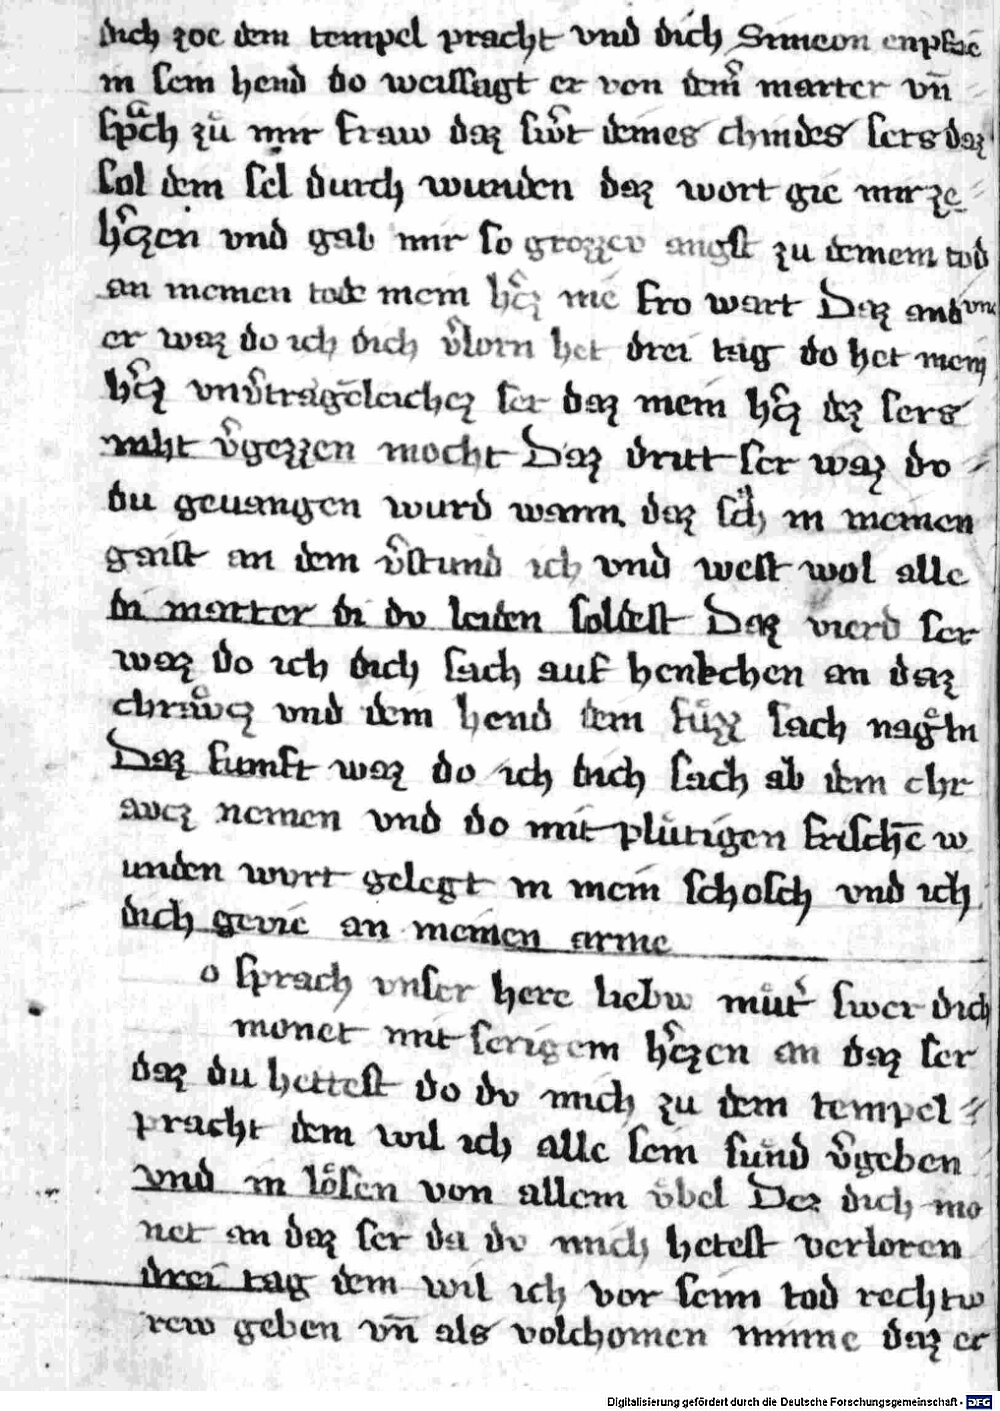 dich zoe dem tempel pracht vnd dich Simeon enphie
in sein hend do weissagt er von deinʳ marter vn̄
spͣch zů mir fraw daz swʳt deines chindes sers daz
sol dein sel durch wunden daz wort gie mir ze
hʳczen vnd gab mir so grozzev angst zu deinem tod
an meinen tode mein hʳcz nie fro wart Daz and
er waz do ich dich vʳlorn het drei tag do het mein
hʳcz vnvʳtragēleichez ser daz mein hʳcz dez sers
niht vʳgezzen mocht Daz dritt ser waz do
du geuangen wurd wann daz sͣch in meinen
gaist an dem vʳstund ich vnd west wol alle
di marter di dv leiden soldest Daz vierd ser
waz do ich dich sach auf henkchen an daz
chraͤwcz vnd dein hend dein fuͤzz sach nagʳln
Daz fumft waz do ich dich sach ab dem chr
aucz nemen vnd do mit pluͤtigen frischē w
unden wurt gelegt in mein schosch vnd ich
dich gevie an meinen arme
o sprach vnser here liebw muͤtʳ swer dich
monet mit serigem hʳczen an daz ser
daz du hettest do dv mich zu dem tempel
pracht dem wil ich alle sein suͤnd vʳgeben
vnd in loͤsen von allem vͤbel Der dich mo
net an daz ser da dv mich hetest verloren
drei tag dem wil ich vor seim tod rechtw
rew geben vn̄ als volchomen minne daz er
Digitalisierung gefördert durch die Deutsche Forschungsgemeinschaft - DFG